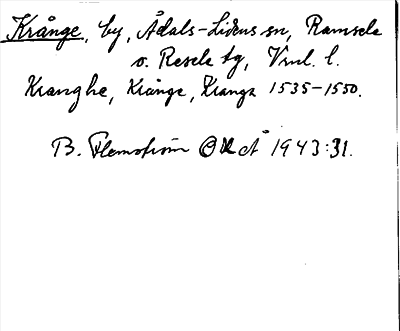 Krånge, by, Ådals-Lidens sn, Ramsele
o. Resele tg, Vnl. l.
Kranghe, Krånge, Krangz 1535-1550.
B. Flemström OUÅ 1943:31.